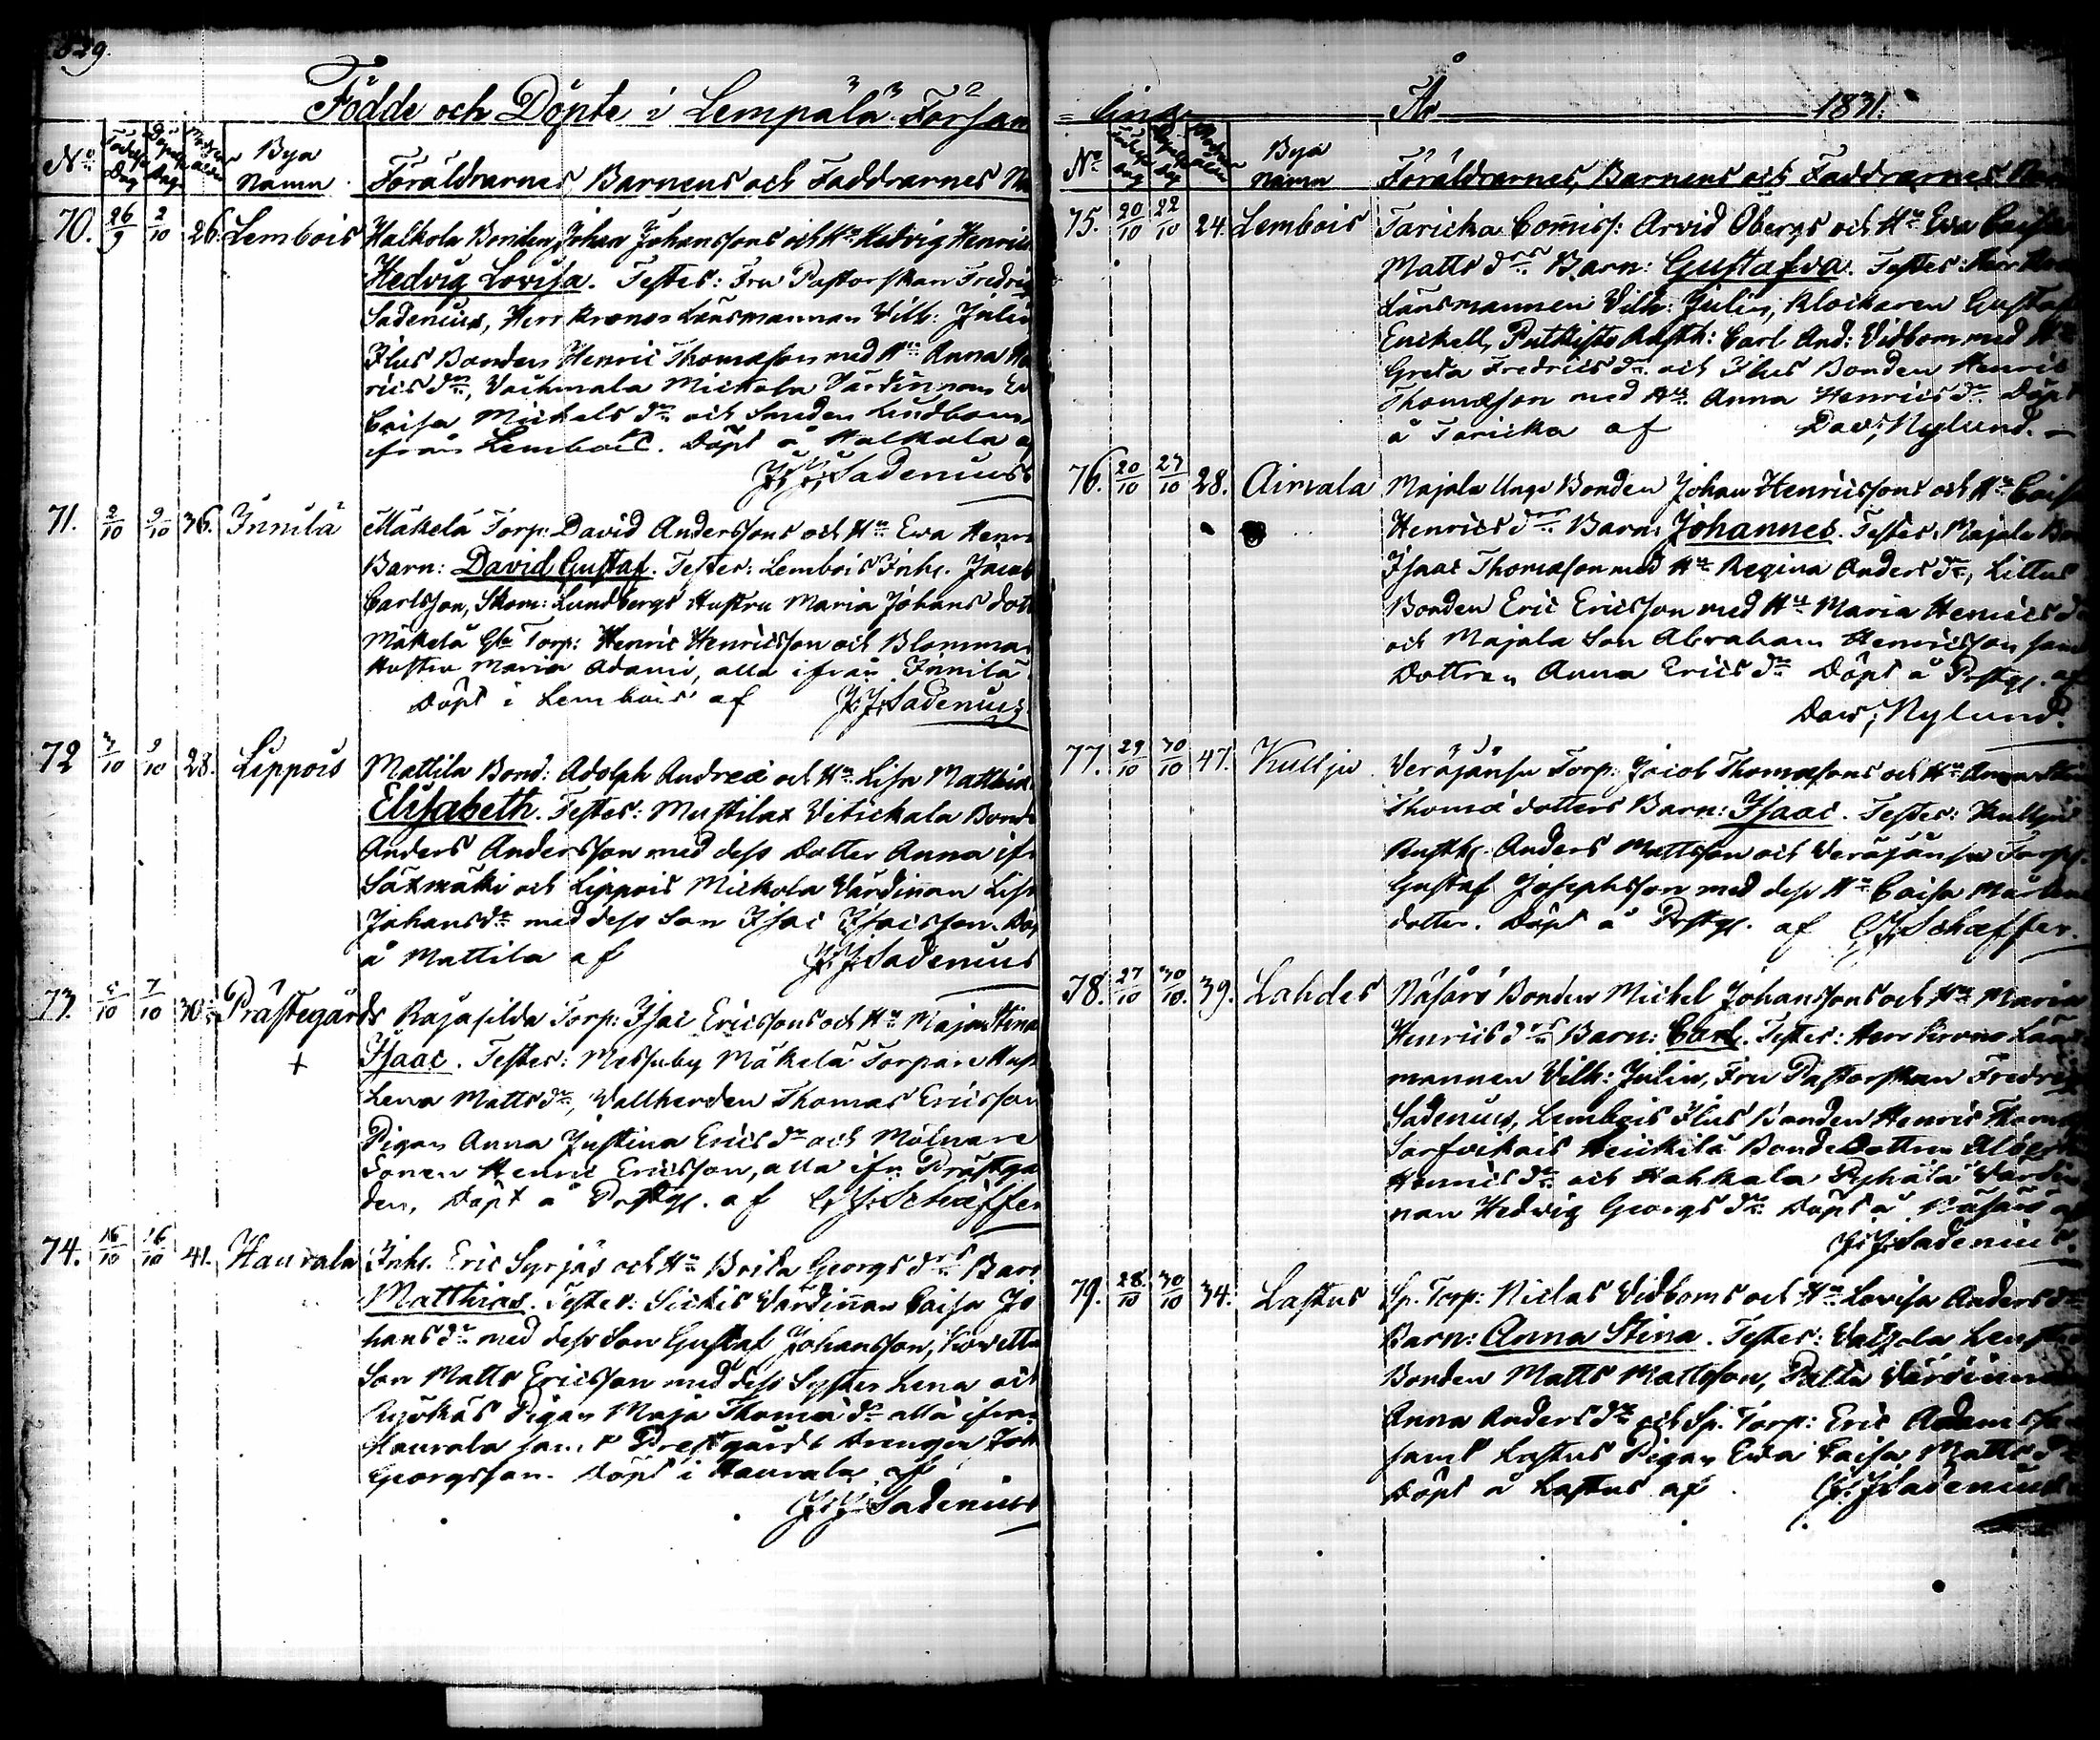 529.
Födde och Döpte i Lempälä Försam
No Födelse Dag Döpelse Dag Modrens ålder Bya Namn Föräldrarnes Barnens och Faddrarnes
70. 26/9 2/10 26. Lembois Halkola Bonden Johan Johanssons och Hu Hedvig Henrics
Hedvig Lovisa. Testes: Fru Pastorskan Fredrig
Sadenius, Herr Krono Länsmannen Vilh: Julin
Ilus Bonden Henric Thomasson med Hu Anna
rics dr, Vaihmala Mickola Värdinnan
Caisa Michels dr och Smeden Lindbom
ifrån Lembois. Döpt å Halkola af
J. J. Sadenius
71. 2/10 9/10 36. Innilä Mäkelä Torp: David Anderssons och Hu Eva Henri
Barn: David Gustaf. Testes: Lembois Inh. Jacob
Carlsson, Skom: Lundbergs Hustru Maria Johans dott
Mäkelä Torp: Henric Henricsson och Blomma
Hustru Maria Adami, alla ifrån Innilä
Döpt i Lembois af J. J. Sadenius
72 3/10 9/10 28. Lippois Mattila Bond: Adolph Andreæ och Hu Lisa Matthiæ
Elisabeth. Testes: Mustilax Vitickala Bond
Anders Andersson med dess Dotter Anna ifr
Säxmäki och Lippois Mickola Värdinnan Lisa
Johans dr med dess Son Isac Isacsson. Döpt
å Mattila af J. J. Sadenius
73. 5/10 7/10 30 Prästegårds Rajasilda Torp: Isac Ericssons och Hu Maja Stina
+ Isaac. Testes: Messuby Mäkelä Torpare Hust
Lena Matts dr, Vallherden Thomas Ericsson
Pigan Anna Justina Erics dr och Mölnare
Sonen Henric Ericsson, alla ifr. Prästgå
den, Döpt å Prstg. af C. J. Schæffer
74. 16/10 16/10 41. Haurala Inh. Eric Syrjäs och Hu Brita Georgs drs Barn
Matthias. Testes: Sickis Värdinnan Caisa Jo
hans dr med dess Son Gustaf Johansson,
Son Matts Ericsson med dess Syster Lena och
Pigan Maja Thomæ dr alla ifrån
Haurala samt Prestgårds Drengen Joh
Georgsson. Döpt i Haurala af
J. J. Sadenius
= ling. År 1831.
No Födelse Dag Döpelse Dag Modrens ålder Bya Namn Föräldrarnes, Barnens och Faddrarnes
75. 20/10 22/10 24. Lembois Taricka Commiss: Arvid Obergs och Hu Eva Caisa
Matts drs Barn: Gustafva. Testes: Herr
Länsmannen Vilh: Julin, Klockaren Gustaf
Enckell, Rusth: Carl And: Vidbom med Hu
Greta Fredrics dr och Ilus Bonden Henric
Thomasson med Hu Anna Henrics dr Döpt
å Taricka af Dav: Nylund.
76. 20/10 23/10 28. Airvala Majala Unge Bonden Johan Henricssons och Hu Caisa
Henrics drs Barn: Johannes. Testes: Majala
Isaac Thomasson med Hu Regina Anders dr, Littus
Bonden Eric Ericsson med Hu Maria Henrics dr
och Majala Son Abraham Henricsson samt
Dottren Anna Erics dr Döpt å Prstg. af
Dav: Nylund.
77. 29/10 30/10 47. Kuljju Veräjänsu Torp: Jacob Thomassons och Hu Anna
Thomæ dotters Barn: Isaac. Testes: Kuljju
Rusth. Anders Mattsson och Veräjänsu Torp.
Gustaf Josephsson med dess Hu Caisa Mårtens
dotter. Döpt å Prstg. af C. J. Schæffer.
78. 27/10 30/10. 39. Lahdes Näsärö Bonden Michel Johanssons och Hu Maria
Henrics drs Barn: Carl. Testes: Herr Krono Läns
mannen Vilh: Julin, Fru Pastorskan Fredrig
Sadenius, Lembois Ilus Bonden Henric Thomas
Sarfvickais Heickilä Bonde Dottren Albert
Henrics dr och Hahkala Pyhälä Värdin
nan Hedvig Georgs dr Döpt å Näsärö af
J. J. Sadenius.
79. 28/10 30/10 34. Lastus Sp. Torp: Niclas Vidboms och Hu Lovisa Anders drs
Barn: Anna Stina. Testes:
Bonden Matts Mattsson, Värdinnan
Anna Anders dr och Sp. Torp: Eric Adamsson
samt Lastus Pigan Eva Caisa Matts dr
Döpt å Lastus af J. J. Sadenius